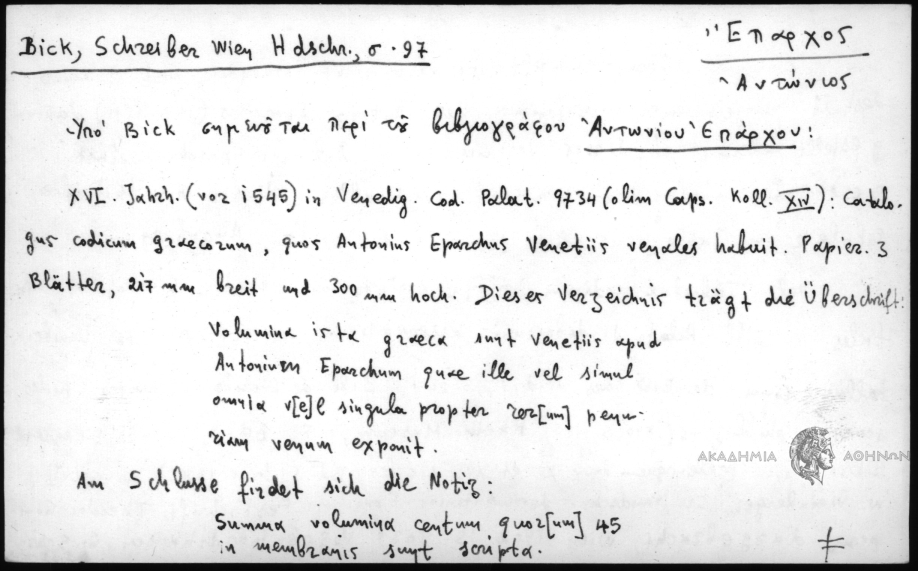 Bick, Schreiber Wien Hdschr., σ. 97
Ἔπαρχος
Ἀντώνιος
Ὑπὸ Bick σημειοῦται περὶ τοῦ βιβλιογράφου Ἀντωνίου Ἐπάρχου:
XVI. Jahrh. (vor 1545) in Venedig. Cod. Palat. 9734 (olim Caps. Koll. XIV): Catalo-
gus codicum graecorum, quos Antonius Eparchus Venetiis venales habuit. Papier. 3
Blätter, 217 mm breit und 300 mm hoch. Dieses Verzeichnis trägt die Überschrift:
Volumina ista graeca sunt Venetiis apud
Antonium Eparchum quae ille vel simul
omnia v[e]l singula propter rer[um] penu-
riam venum exponit.
ΑΚΑΔΗΜΙΑ ΑΘΗΝΩΝ
Am Schlusse findet sich die Notiz:
Summa volumina centum quor[um] 45
in membranis sunt scripta.
≠